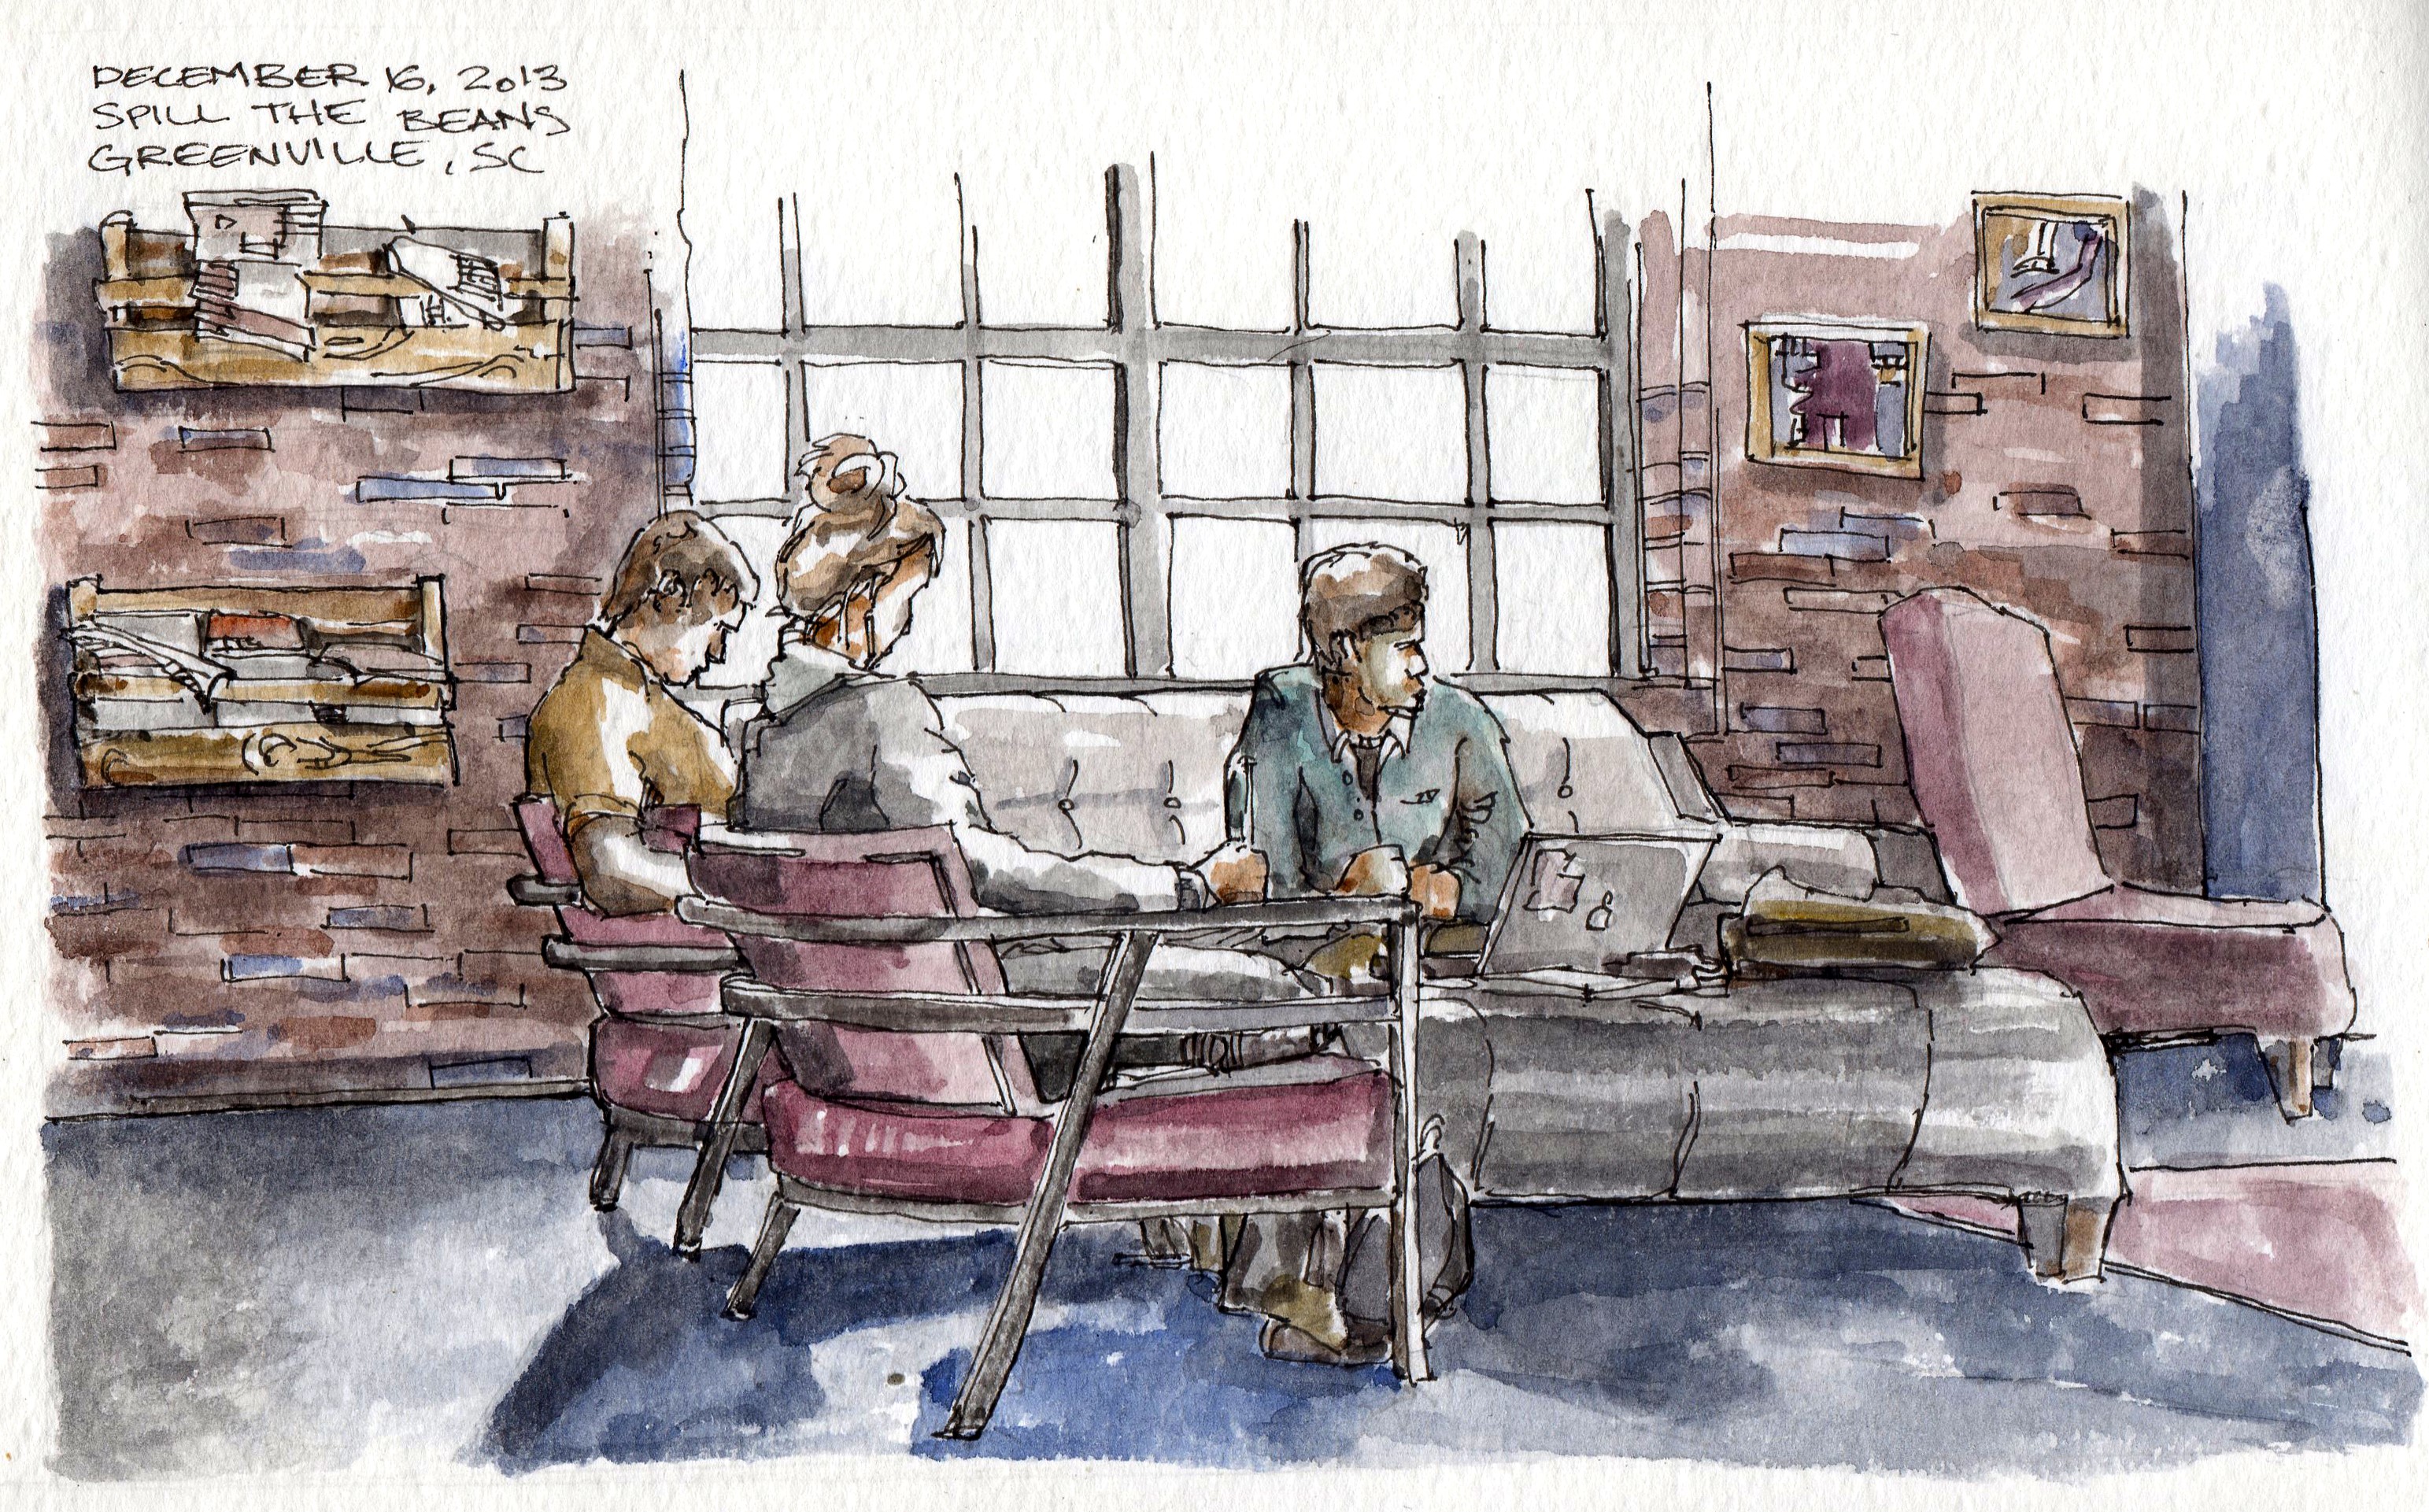 DECEMBER 16, 2013
SPILL THE BEANS
GREENVILLE, SC